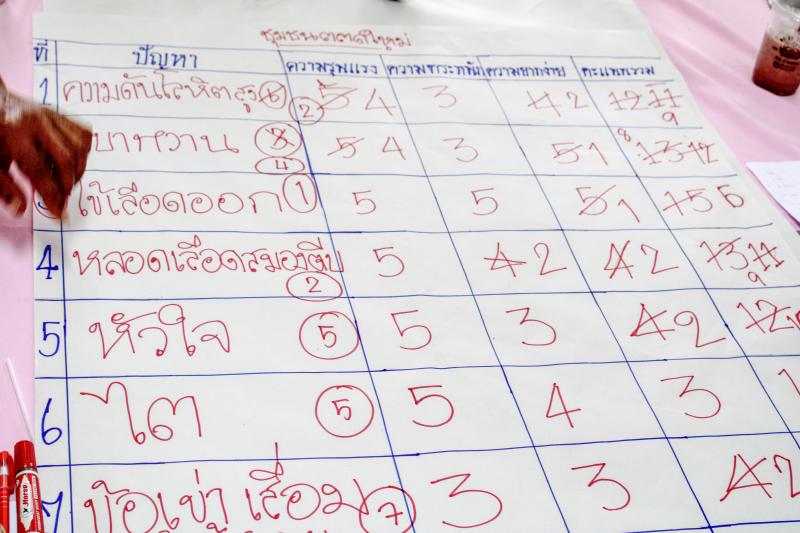 ที่ ปัญหา ความรุนแรง ความตระหนัก ความยากง่าย คะแนนรวม
1 ความดันโลหิตสูง 2 5 4 3 4 2 12 11 9
เบาหวาน 3 4 5 4 3 5 1 8 13 12
3 ไข้เลือดออก 1 5 5 5 1 15 6
4 หลอดเลือดสมองตีบ 2 5 4 2 4 2 13 11 9
5 หัวใจ 5 5 3 4 2 12
6 ไต 5 5 4 3
7 ข้อเข่าเสื่อม 7 3 3 4 2
Horse